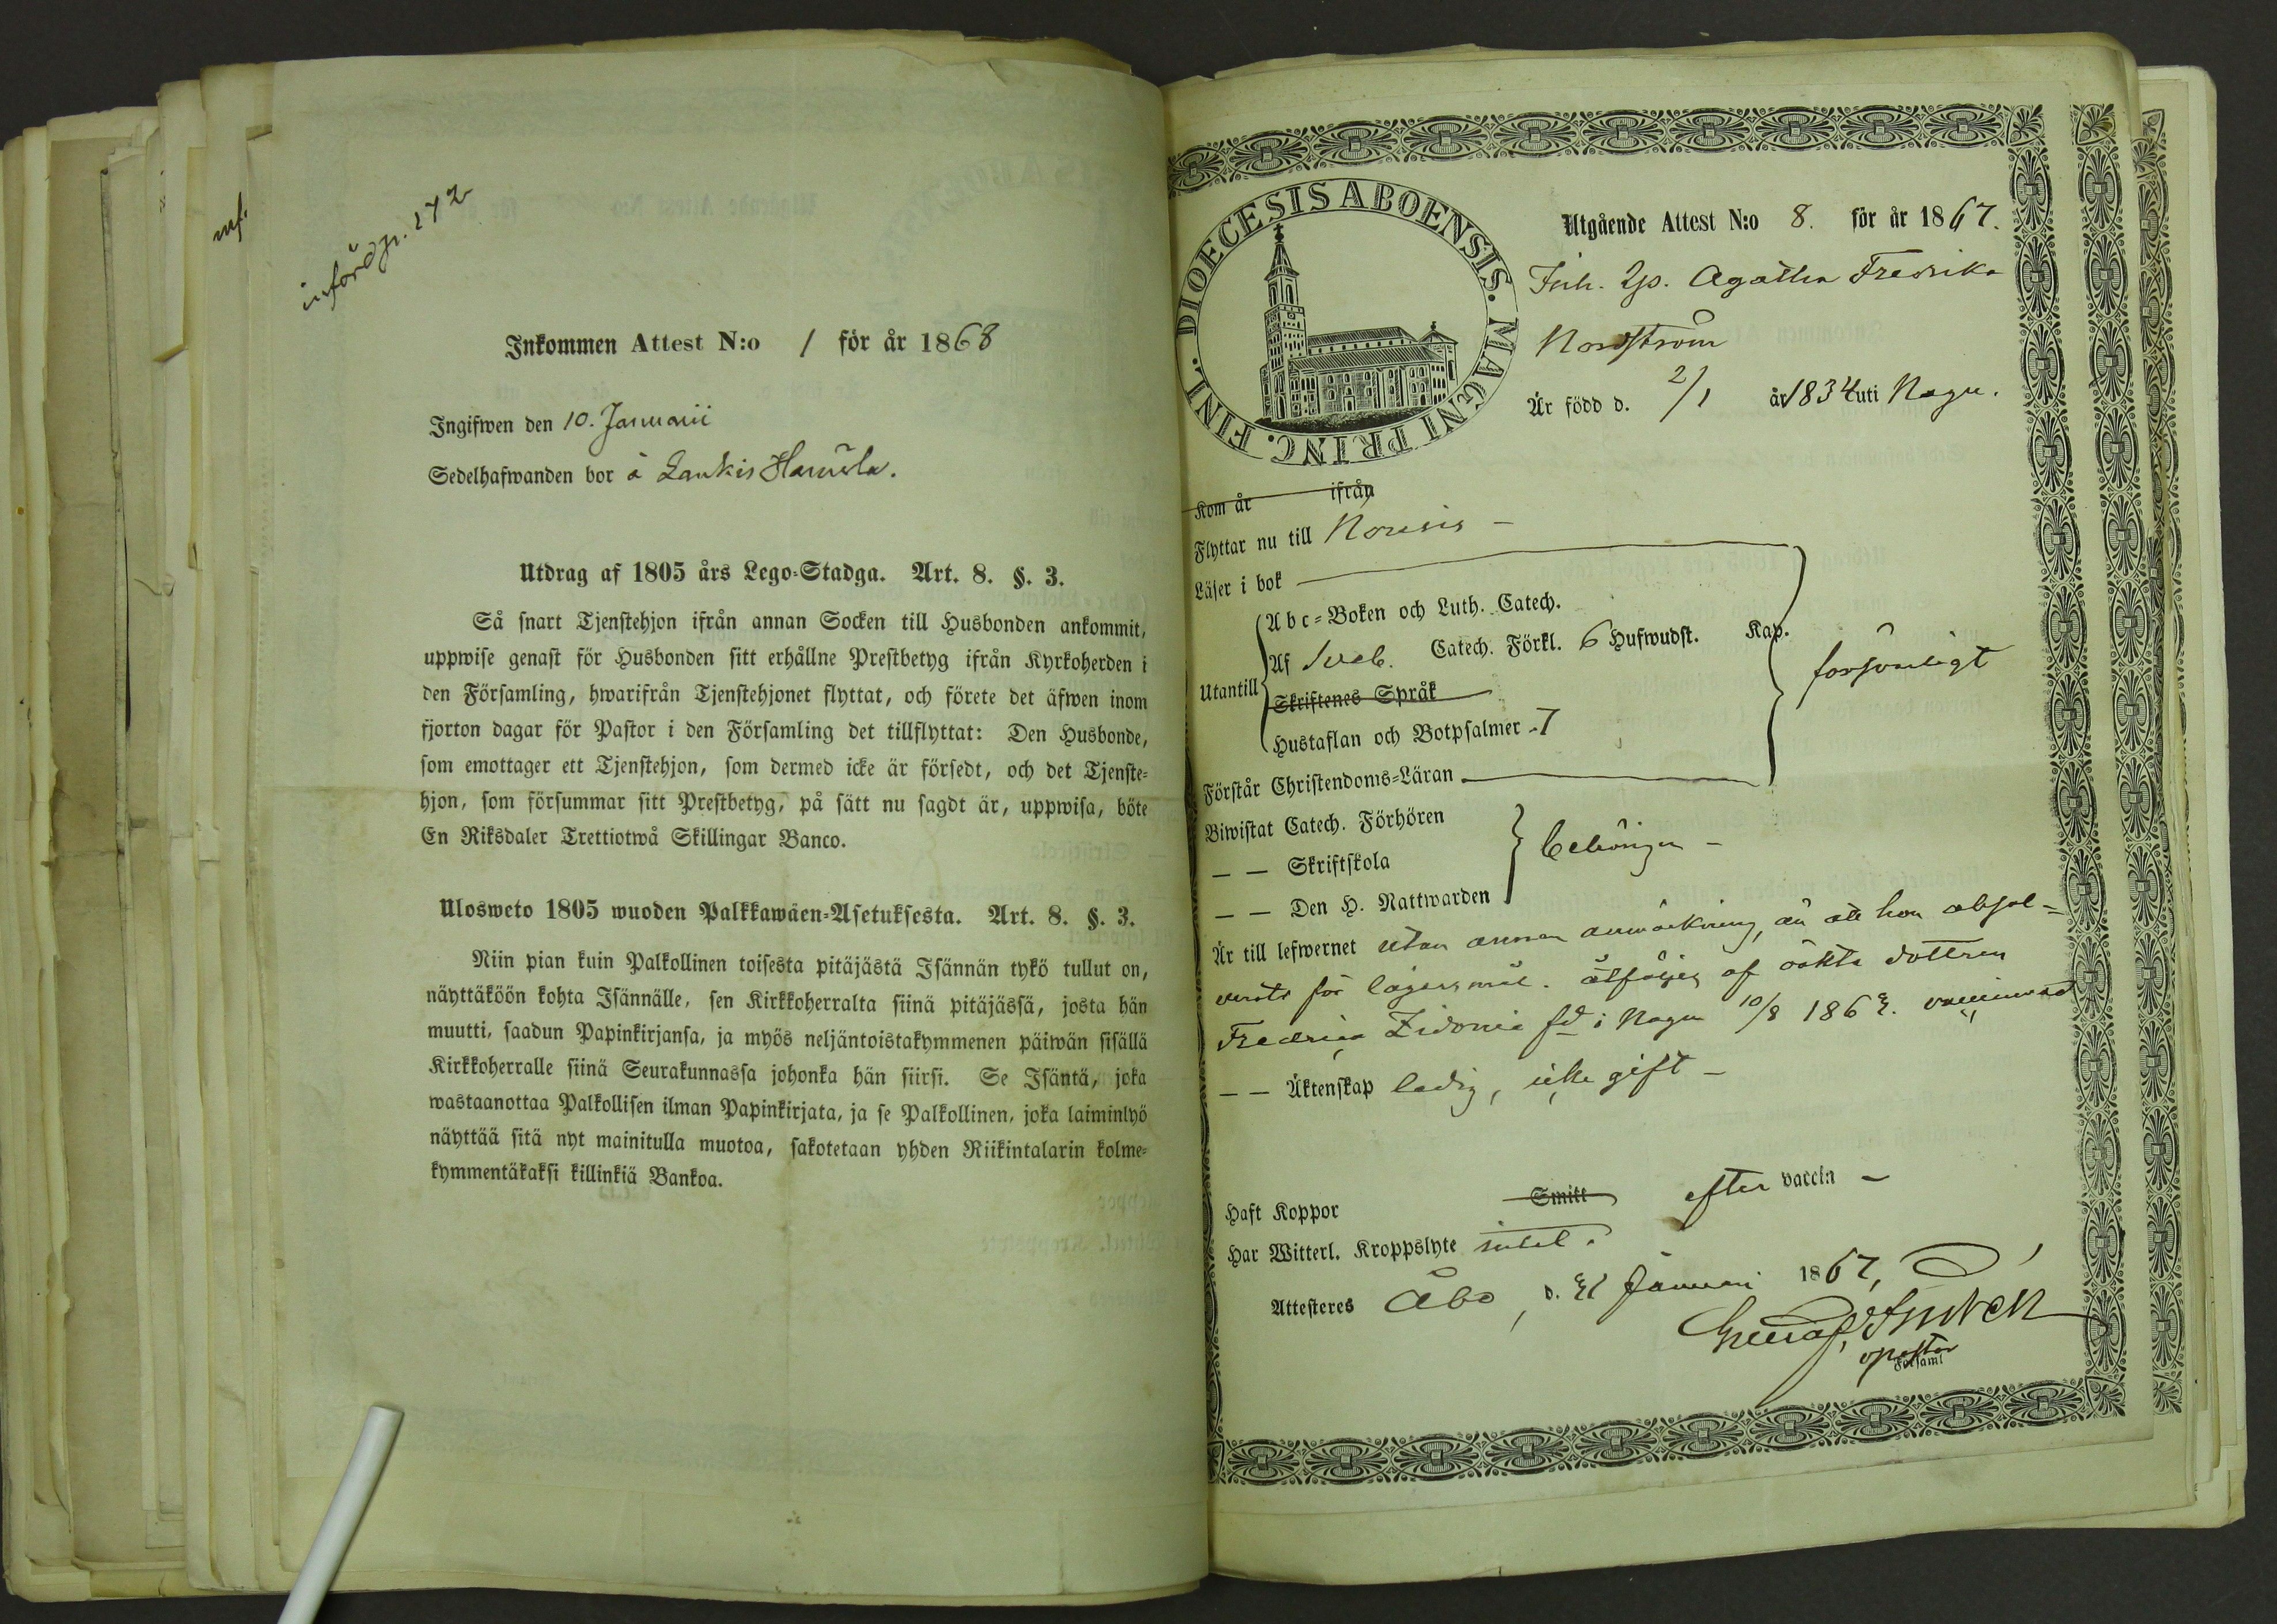 införd p. 272
Inkommen Attest N:o 1 för år 1868
Ingifwen den 10. Januarii
Sedelhafwanden bor å Lankis Hannula.
Utdrag af 1805 års Lego-Stadga. Art. 8. §. 3.
Så snart Tjenstehjon ifrån annan Socken till Husbonden ankommit,
uppwise genast för Husbonden sitt erhållne Prestbetyg ifrån Kyrkoherden i
den Församling, hwarifrån Tjenstehjonet flyttat, och förete det äfwen inom
fjorton dagar för Pastor i den Församling det tillflyttat: Den Husbonde,
som emottager ett Tjenstehjon, som dermed icke är försedt, och det Tjenste-
hjon, som försummar sitt Prestbetyg, på sätt nu sagdt är, uppwisa, böte
En Riksdaler Trettiotwå Skillingar Banco.
Ulosweto 1805 wuoden Palkkawäen-Asetuksesta. Art. 8. §. 3.
Niin pian kuin Palkollinen toisesta pitäjästä Isännän tykö tullut on,
näyttäköön kohta Isännälle, sen Kirkkoherralta siinä pitäjässä, josta hän
muutti, saadun Papinkirjansa, ja myös neljäntoistakymmenen päiwän sisällä
Kirkkoherralle siinä Seurakunnassa johonka hän siirsi. Se Isäntä, joka
wastaanottaa Palkollisen ilman Papinkirjata, ja se Palkollinen, joka laiminlyö
näyttää sitä nyt mainitulla muotoa, sakotetaan yhden Riikintalarin kolme-
kymmentäkaksi killinkiä Bankoa.
DIOECESIS ABOENSIS. MAGNI PRINC. FINL.
Utgående Attest N:o 8. för år 1867.
Inh. Qp. Agatha Fredrika
Nordström
Är född d. 2/1 år 1834 uti Nagu.
Kom år ifrån
Flyttar nu till Nousis -
Läser i bok
Abc-Boken och Luth. Catech.
Af Sveb. Catech. Förkl. 6 Hufwudst. Kap.
försvarligt
Utantill
Skriftenes Språk
Hustaflan och Botpsalmer - 7
Förstår Christendoms-Läran
Biwistat Catech. Förhören
— — Skriftskola
behörigen -
— — Den H. Nattwarden
Är till lefwernet utan annan anmärkning, än att hon absol-
verats för lägersmål. åtföljes af oäkta dottren
Fredrica Zidonia fd i Nagu 10/8 1862. vaccinerad
— — Äktenskap ledig, icke gift -
Haft Koppor Smitt efter vaccin -
Har Witterl. Kroppslyte intet.
Attesteres Åbo, d. 21 Januari 1867,
vpastor
Församl